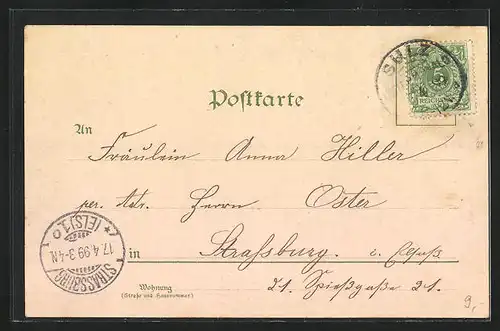 SULZ
REICHSPOST
Postkarte
An
Fräulein Anna Hiller
per. Adr. Herrn Oster
in Straßburg i. Elsaß
Wohnung
(Straße und Hausnummer)
21. Spießgaße 21.
STRASSBURG
17.4.99.3-4N.
* (ELS) 1 o
9,-